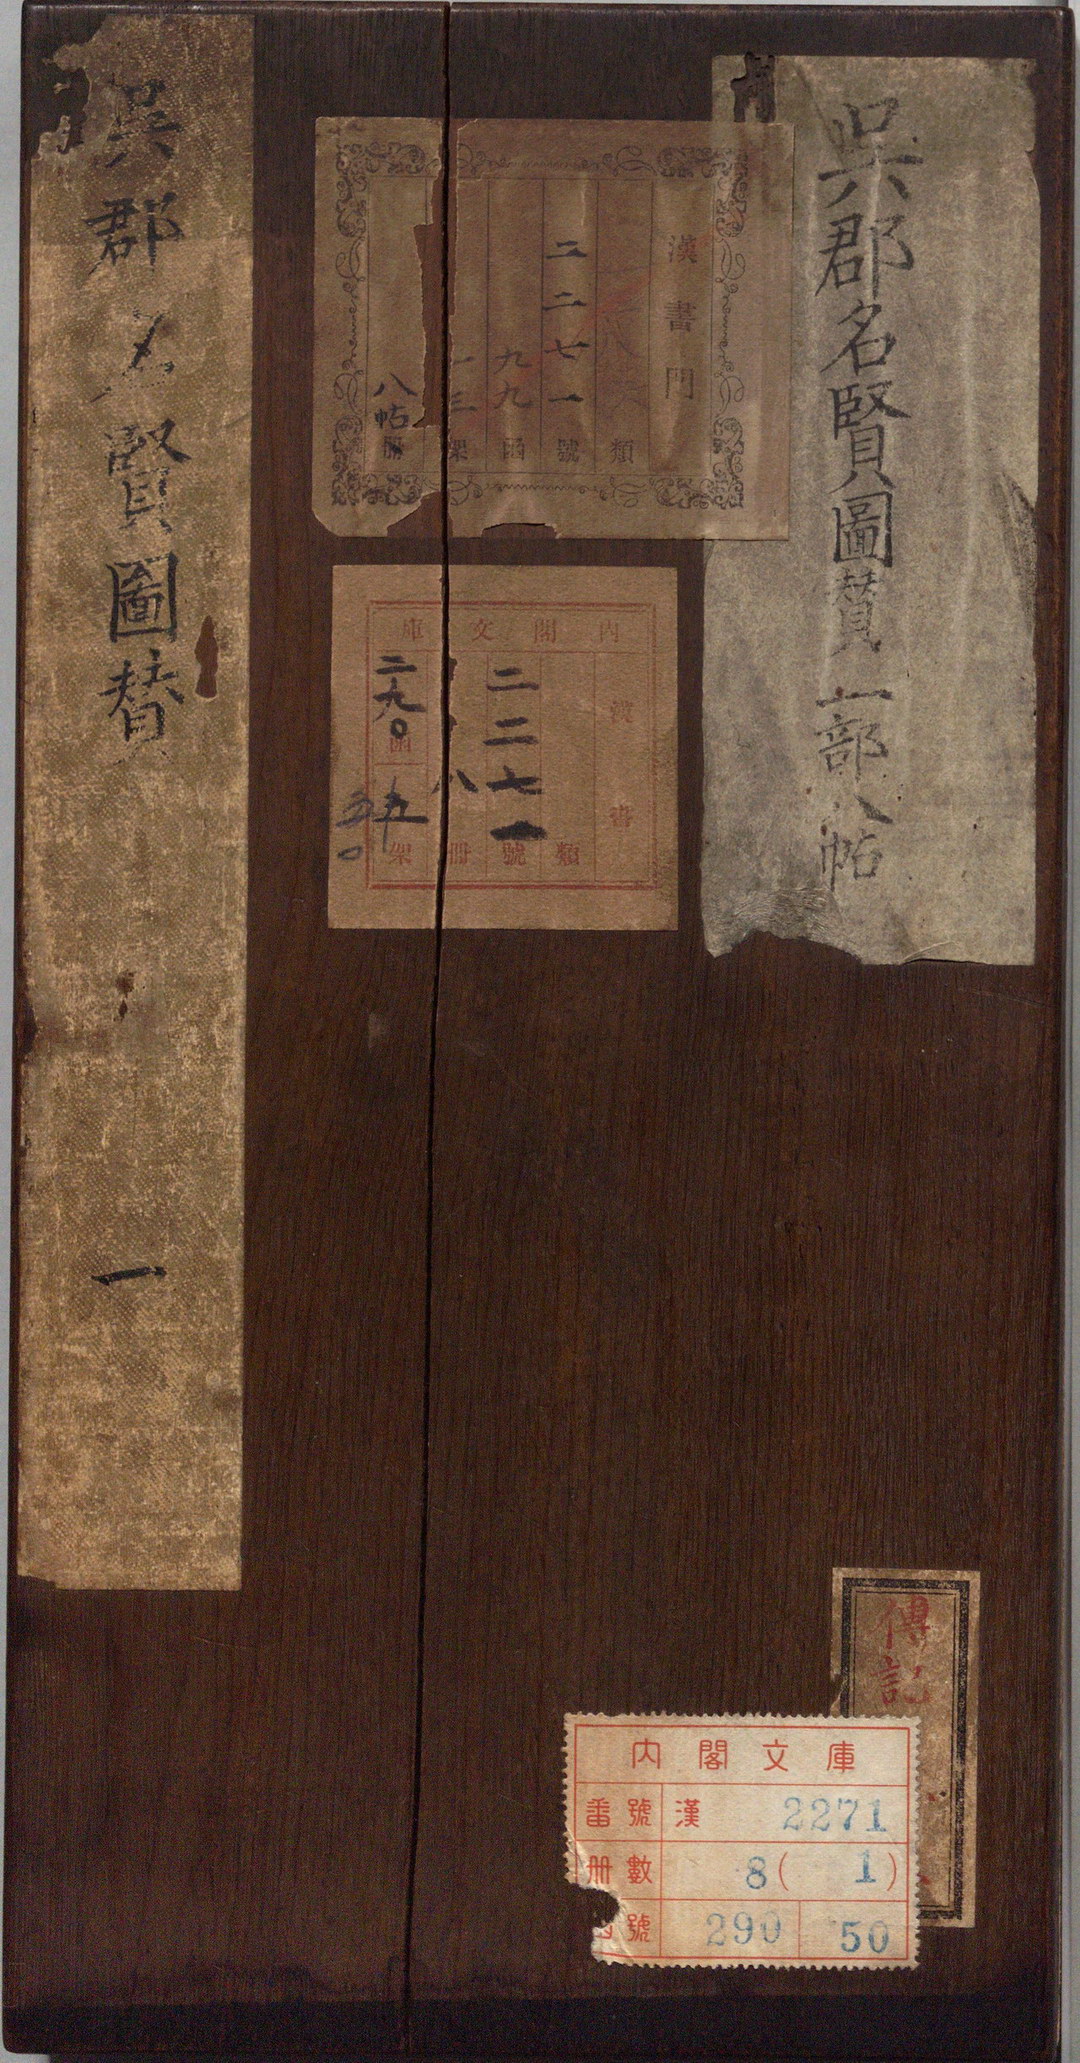 吳郡名賢圖贊一部八帖
漢書門
類
二二七一號
九九函
一三架
八帖冊
內閣文庫
漢書
類
二二七一號
八冊
二九〇函
五架
五〇
吳郡名賢圖替 一
傳記
內閣文庫
番號 漢 2271
冊數 8( 1)
號 290 50